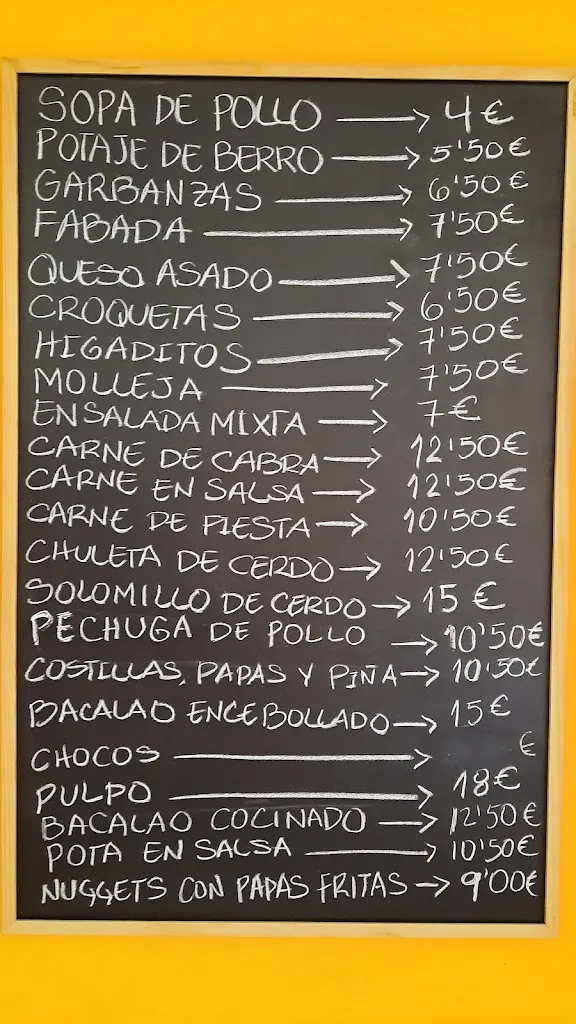 SOPA DE POLLO → 4€
POTAJE DE BERRO → 5'50€
GARBANZAS → 6'50€
FABADA → 7'50€
QUESO ASADO → 7'50€
CROQUETAS → 6'50€
HIGADITOS → 7'50€
MOLLEJA → 7'50€
ENSALADA MIXTA → 7€
CARNE DE CABRA → 12'50€
CARNE EN SALSA → 12'50€
CARNE DE FIESTA → 10'50€
CHULETA DE CERDO → 12'50€
SOLOMILLO DE CERDO → 15€
PECHUGA DE POLLO → 10'50€
COSTILLAS, PAPAS Y PIÑA → 10'50€
BACALAO ENCEBOLLADO → 15€
CHOCOS → €
PULPO → 18€
BACALAO COCINADO → 12'50€
POTA EN SALSA → 10'50€
NUGGETS CON PAPAS FRITAS → 9'00€